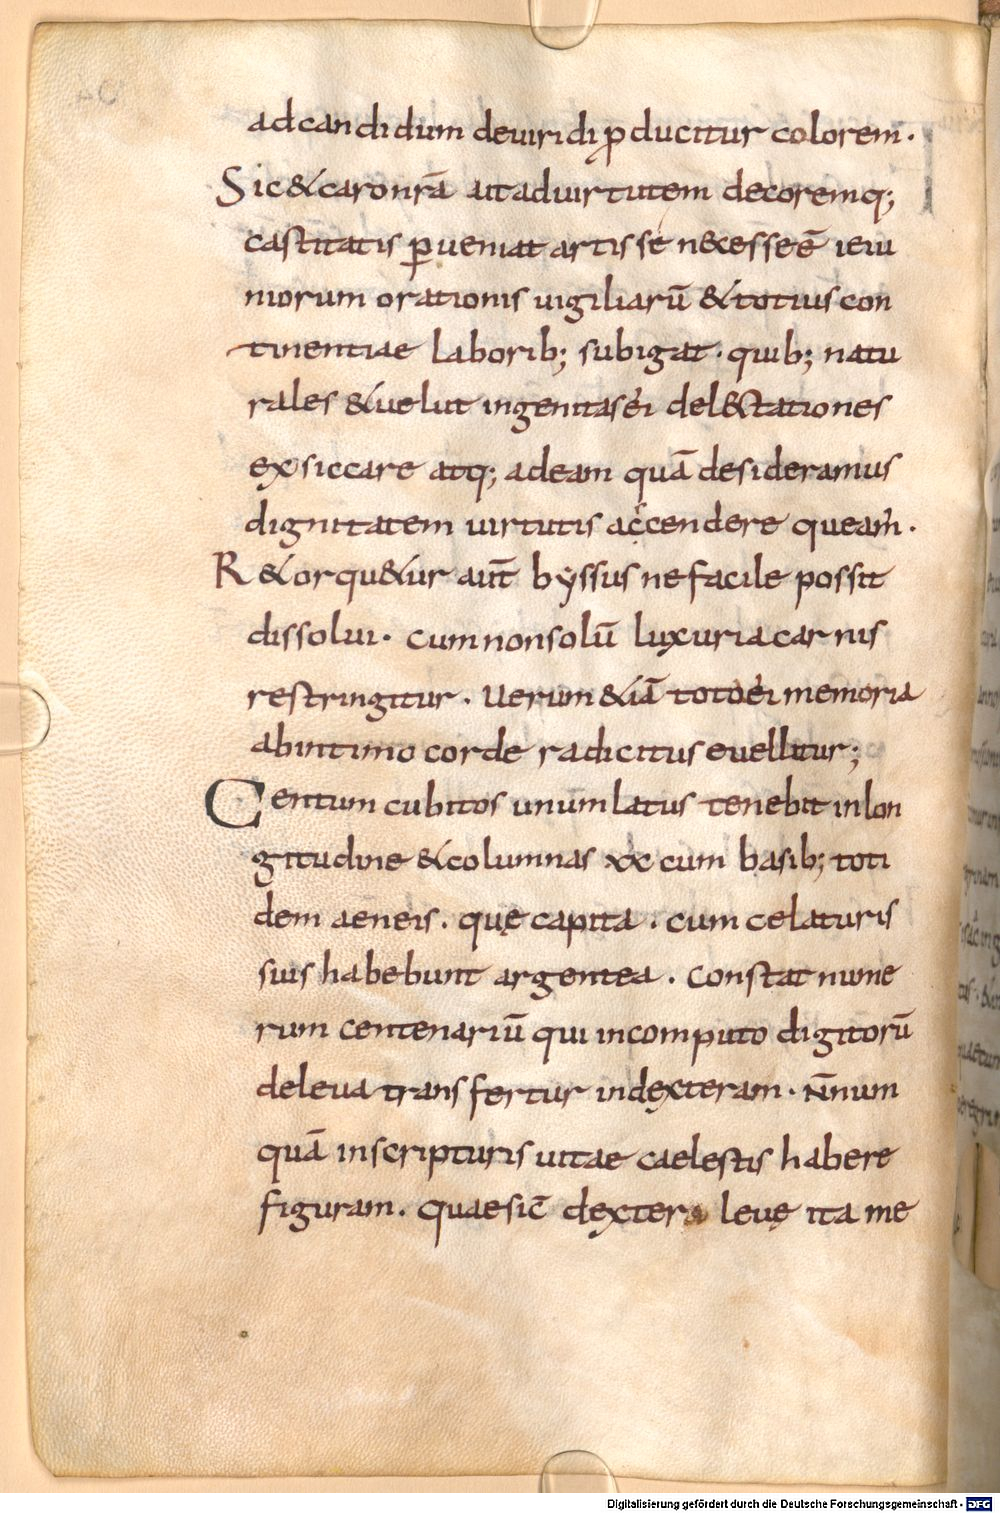 ad candidum deuiridi ꝓducitur colorem.
Sic & caro nrā ut ad uirtutem decoremq;
castitatis ꝑueniat artis se necesse ē ieiu
niorum orationis uigiliarū & totius con
tinentiae laborib; subigat. quib; natu
rales & uelut ingenitas ei delectationes
exsiccare atq; ad eam quā desideramus
dignitatem uirtutis accendere queam.
R&orqu&ur aut̄ byssus ne facile possit
dissolui. cum non solū luxuria carnis
restringitur. Uerum &iā toto ei memoria
ab intimo corde radicitus euellitur;
Centum cubitos unum latus tenebit in lon
gitudine & columnas xx cum basib; toti
dem aeneis. quę capita. cum celaturis
suis habebunt argentea. Constat nume
rum centenariū qui in computo digitorū
de leua transfertur in dexteram. Nn̄num
quā in scripturis uitae caelestis habere
figuram. Quae sic̄ dextera leuę ita me
Digitalisierung gefördert durch die Deutsche Forschungsgemeinschaft - DFG